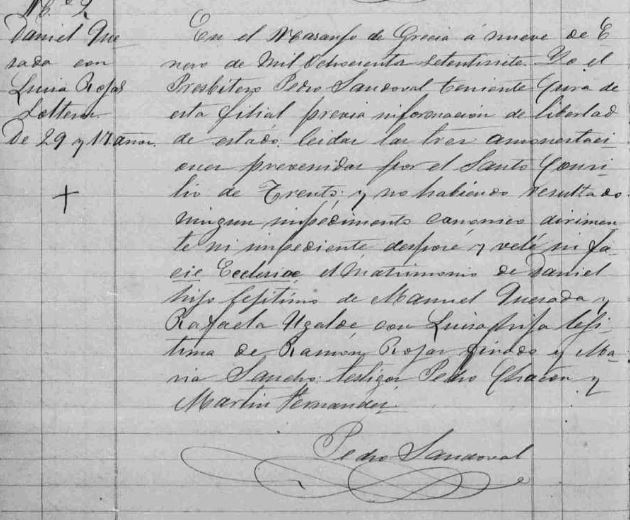 N.º 2
Daniel Que
sada con
Luisa Rojas
Solteros
De 29 y 17 años.
En el Naranjo de Grecia á nueve de E
nero de Mil Ochocientos setentisiete. Yo el
Presbitero Pedro Sandoval teniente Cura de
esta filial previa informacion de libertad
de estado, leidas las tres amonestaci
ones prevenidas por el Santo Conci
lio de Trento: y no habiendo resultado
ningun impedimento canonico dirimen
te ni impediente desposé y velé in fa
cie Ecclesiae el Matrimonio de Daniel
hijo lejitimo de Manuel Quesada y
Rafaela Ugalde con Luisa hija leji
tima de Ramón Rojas finado y Ma
ria Sancho: testigos Pedro Chacon y
Martin Fernandez
Pedro Sandoval